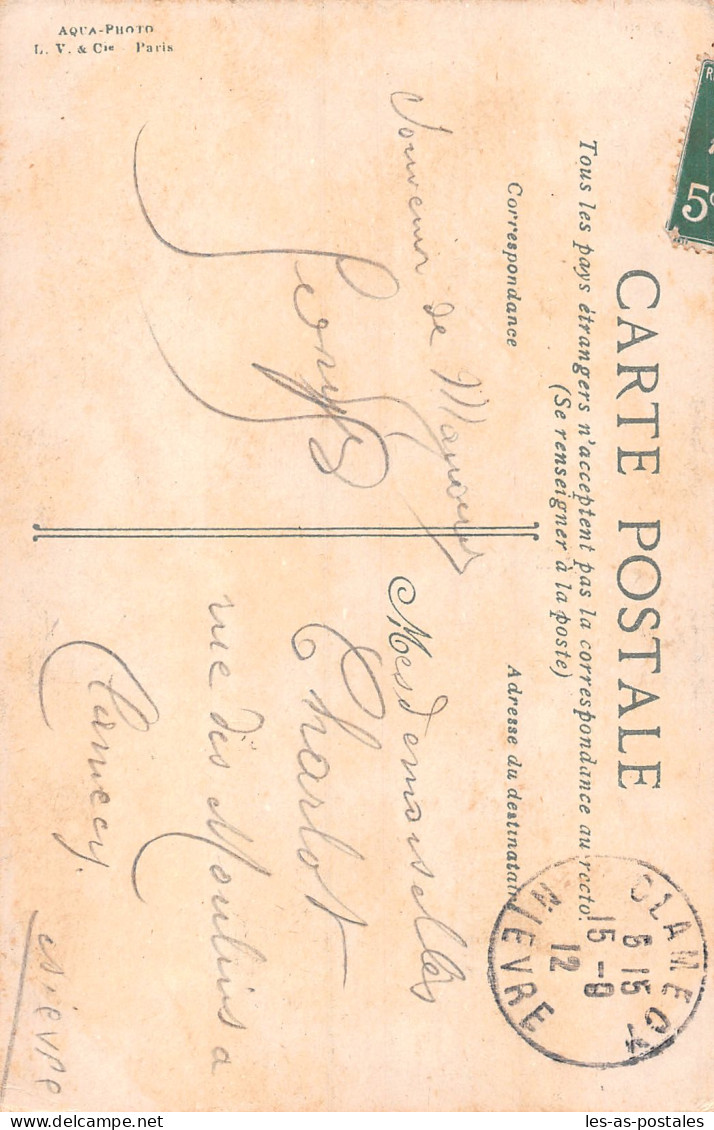 CARTE POSTALE
Tous les pays étrangers n'acceptent pas la correspondance au recto.
(Se renseigner à la poste)
Correspondance
Adresse du destinatair
Souvenir de
Mesdemoiselles
Charlot
rue des Moulins a
Clamecy
Nièvre
CLAMECY
5 15
15-9
12
NIEVRE
5c
AQUA-PHOTO
L. V. & Cie Paris
les-as-postales / delcampe.net